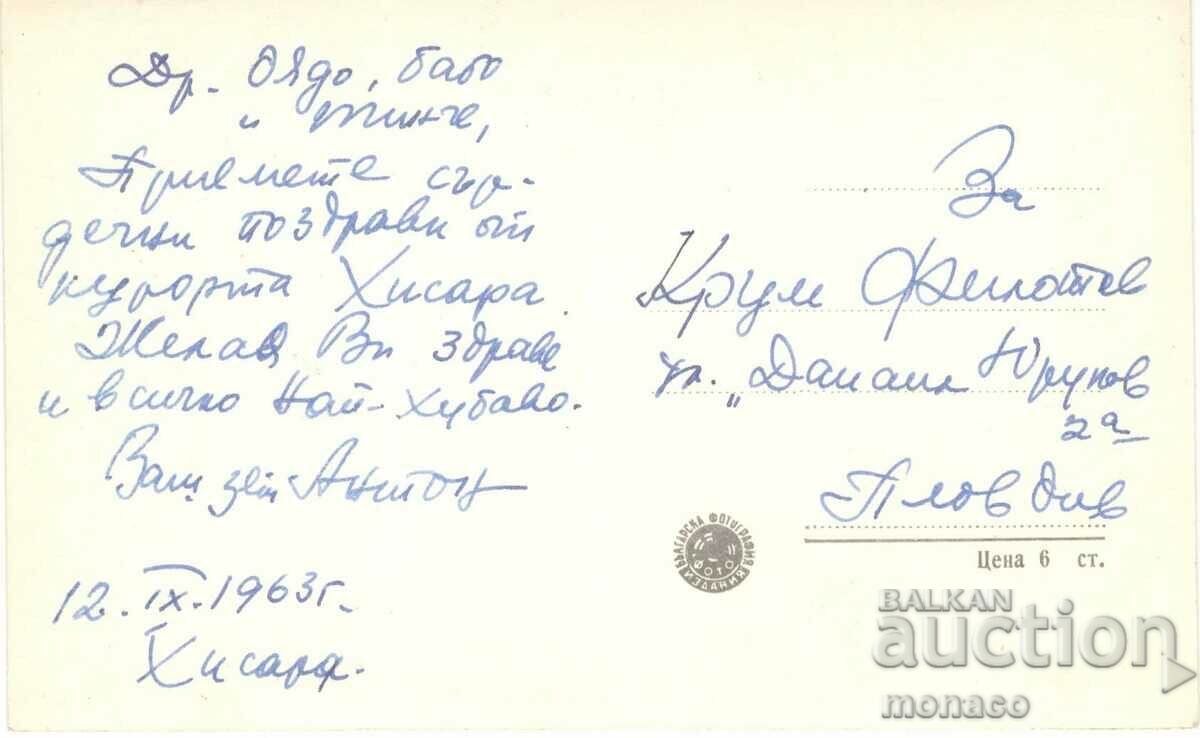 Др. Дядо, бабо
и Тинче,
Приемете сър-
дечни поздрави от
курорта Хисара.
Желая Ви здраве
и всичко най-хубаво.
Ваш зет Антон
12.IX.1963г.
Хисара.
За
Крум Филотев
ул. „Данаил Юруков
2а
Пловдив
БЪЛГАРСКА ФОТОГРАФИЯ
ФОТО
Цена 6 ст.
BALKAN
auction
monaco